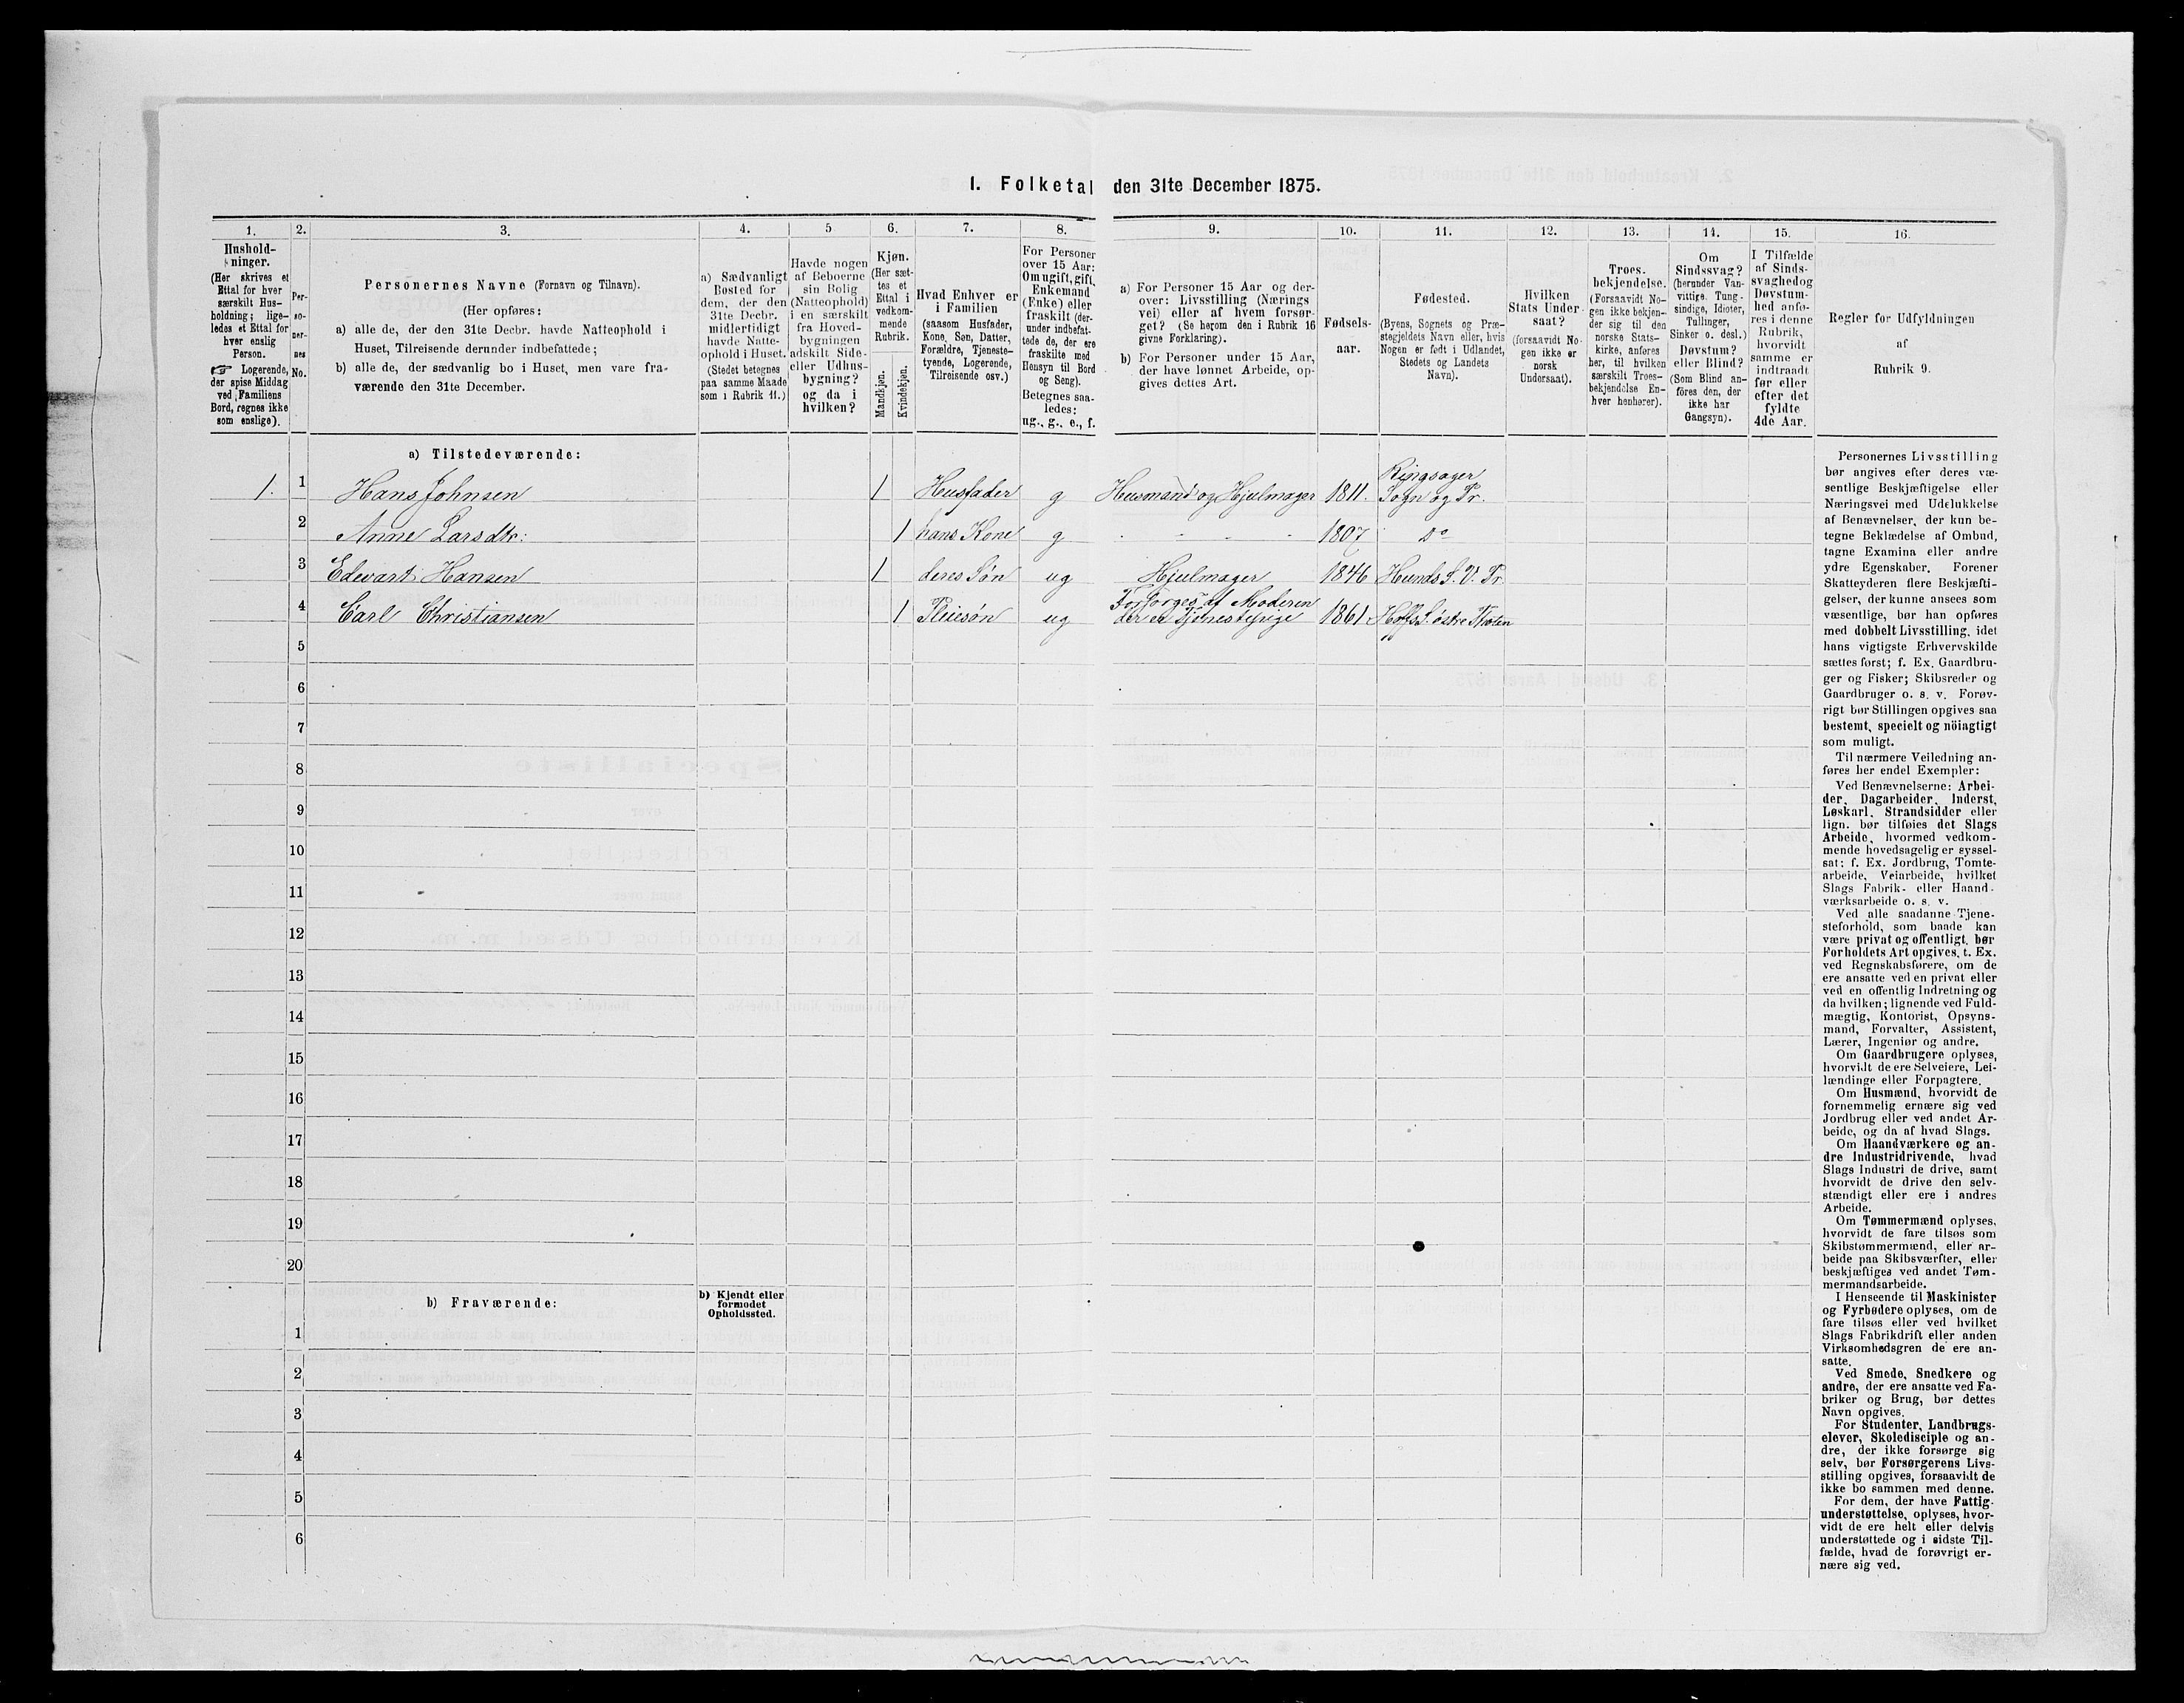 1. Folketal den 31te December 1875.
1.
Hushold-
ninger.
(Her skrives et
Ettal for hver
særskilt Hus-
holdning; lige-
ledes et Ettal for
hver enslig
Person.
☞ Logerende,
der spise Middag
ved Familiens
Bord, regnes ikke
som enslige).
2.
Per-
so-
ner-
nes
No.
3.
Personernes Navne (Fornavn og Tilnavn).
(Her opføres:
a) alle de, der den 31te Decbr. havde Natteophold i
Huset, Tilreisende derunder indbefattede;
b) alle de, der sædvanlig bo i Huset, men vare fra-
værende den 31te December.
4.
a) Sædvanligt
Bosted for
dem, der den
31te Decbr.
midlertidigt
havde Natte-
ophold i Huset.
(Stedet betegnes
paa samme Maade
som i Rubrik 11.)
5
Havde nogen
af Beboerne
sin Bolig
(Natteophold)
i en særskilt
fra Hoved-
bygningen
adskilt Side-
eller Udhus-
bygning?
og da i
hvilken?
6.
Kjøn.
(Her sæt-
tes et
Ettal i
vedkom-
mende
Rubrik.
Mandkjøn.
Kvindekjøn.
7.
Hvad Enhver er
i Familien
(saasom Husfader,
Kone, Søn, Datter,
Forældre, Tjeneste-
tyende, Logerende,
Tilreisende osv.)
8.
For Personer
over 15 Aar:
Om ugift, gift,
Enkemand
(Enke) eller
fraskilt (der-
under indbefat-
tede de, der ere
fraskilte med
Hensyn til Bord
og Seng).
Betegnes saa-
ledes:
ug., g., e., f.
9.
a) For Personer 15 Aar og der-
over: Livsstilling (Nærings
vei) eller af hvem forsør-
get? (Se herom den i Rubrik 16
givne Forklaring).
b) For Personer under 15 Aar,
der have lønnet Arbeide, op-
gives dettes Art.
10.
Fødsels-
aar.
11.
Fødested.
(Byens, Sognets og Præ-
stegjeldets Navn eller, hvis
Nogen er født i Udlandet,
Stedets og Landets
Navn).
12.
Hvilken
Stats Under-
saat?
(forsaavidt No-
gen ikke er
norsk
Undersaat).
13.
Troes-
bekjendelse.
(Forsaavidt No-
gen ikke bekjen-
der sig til den
norske Stats-
kirke, anføres
her, til hvilken
særskilt Troes-
bekjendelse En-
hver henhører).
14.
Om
Sindssvag?
(herunder Van-
vittige, Tung-
sindige, Idioter,
Tullinger,
Sinker o. desl.)
Døvstum?
eller Blind?
(Som Blind an-
føres den, der
ikke har
Gangsyn).
15.
I Tilfælde
af Sinds-
svaghed og
Døvstum-
hed anfø-
res i denne
Rubrik,
hvorvidt
samme er
indtraadt
før eller
efter det
fyldte
4de Aar.
16.
Regler for Udfyldningen
af
Rubrik 9.
a) Tilstedeværende:
1. 1 Hans Johnsen 1 Husfader g Husmand og Hjulmager 1811. Ringsager Sogn og Pr.
2 Anne Larsdtr: 1 hans Kone g - - - - 1807 Do
3 Edevart Hansen 1 deres Søn ug Hjulmager 1846 Hunds S. V. Pr.
4 Carl Christiansen 1 Pleiesøn ug Forsørges af Moderen der er Tjenestepige 1861 Hoffs S. østre Thoten
5
6
7
8
9
10
11
12
13
14
15
16
17
18
19
20
b) Fraværende:
b) Kjendt eller
formodet
Opholdssted.
1
2
3
4
5
6
Personernes Livsstilling
bør angives efter deres væ-
sentlige Beskjæftigelse eller
Næringsvei med Udelukkelse
af Benævnelser, der kun be-
tegne Beklædelse af Ombud,
tagne Examina eller andre
ydre Egenskaber. Forener
Skatteyderen flere Beskjæfti-
gelser, der kunne ansees som
væsentlige, bør han opføres
med dobbelt Livsstilling, idet
hans vigtigste Erhvervskilde
sættes først; f. Ex. Gaardbru-
ger og Fisker; Skibsreder og
Gaardbruger o. s. v. Forøv-
rigt bør Stillingen opgives saa
bestemt, specielt og nöiagtigt
som muligt.
Til nærmere Veiledning an-
føres her endel Exempler:
Ved Benævnelserne: Arbei-
der, Dagarbeider, Inderst,
Løskarl, Strandsidder eller
lign. bør tilføies det Slags
Arbeide, hvormed vedkom-
mende hovedsagelig er syssel-
sat; f. Ex. Jordbrug, Tomte-
arbeide, Veiarbeide, hvilket
Slags Fabrik- eller Haand-
værksarbeide o. s. v.
Ved alle saadanne Tjene-
steforhold, som baade kan
være privat og offentligt, bør
Forholdets Art opgives, t. Ex.
ved Regnskabsførere, om de
ere ansatte ved en privat eller
ved en offentlig Indretning og
da hvilken; lignende ved Fuld-
mægtig, Kontorist, Opsyns-
mand, Forvalter, Assistent,
Lærer, Ingeniør og andre.
Om Gaardbrugere oplyses,
hvorvidt de ere Selveiere, Lei-
lændinge eller Forpagtere.
Om Husmænd, hvorvidt de
fornemmelig ernære sig ved
Jordbrug eller ved andet Ar-
beide, og da af hvad Slags.
Om Haandværkere og an-
dre Industridrivende, hvad
Slags Industri de drive, samt
hvorvidt de drive den selv-
stændigt eller ere i andres
Arbeide.
Om Tømmermænd oplyses,
hvorvidt de fare tilsøs som
Skibstømmermænd, eller ar-
beide paa Skibsværfter, eller
beskjæftiges ved andet Tøm-
mermandsarbeide.
I Henseende til Maskinister
og Fyrbødere oplyses, om de
fare tilsøs eller ved hvilket
Slags Fabrikdrift eller anden
Virksomhedsgren de ere an-
satte.
Ved Smede, Snedkere og
andre, der ere ansatte ved Fa-
briker og Brug, bør dettes
Navn opgives.
For Studenter, Landbrugs-
elever, Skoledisciple og an-
dre, der ikke forsørge sig
selv, bør Forsørgerens Livs-
stilling opgives, forsaavidt de
ikke bo sammen med denne.
For dem, der have Fattig-
understøttelse, oplyses, hvor-
vidt de ere helt eller delvis
understøttede og i sidste Til-
fælde, hvad de forøvrigt er-
nære sig ved.